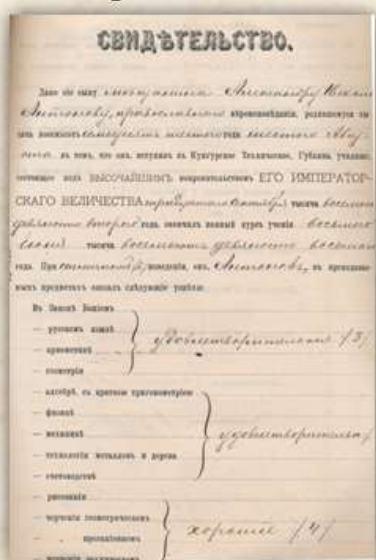 СВИДѢТЕЛЬСТВО.
Дано сіе сыну Александру
Антонову, православнаго вѣроисповѣданія, родившемуся ты
сяча восемьсотъ семьдесятъ шестого года шестого Авгу
ста въ томъ, что онъ, вступивъ въ Кунгурское Техническое, Губкина, училище,
состоящее подъ ВЫСОЧАЙШИМЪ покровительствомъ ЕГО ИМПЕРАТОР-
СКАГО ВЕЛИЧЕСТВА сентября тысяча восемьсотъ
девяносто второго года, окончилъ полный курсъ ученія восьмого
іюня тысяча восемьсотъ девяносто восьмого
года. При поведеніи, онъ, Антоновъ, въ преподавае-
мыхъ предметахъ оказалъ слѣдующіе успѣхи:
Въ Законѣ Божіемъ
— русскомъ языкѣ
— ариѳметикѣ
— геометріи
удовлетворительные /3/
— алгебрѣ, съ краткою тригонометріею
— физикѣ
— механикѣ
— технологіи металловъ и дерева
— счетоводствѣ
удовлетворительн
— рисованіи
— черченіи геометрическомъ
— проекціонномъ
— черченіи техническомъ
хорошіе /4/